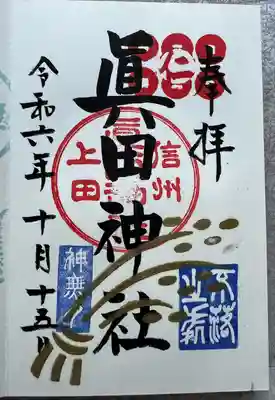 奉拝
眞田神社
信州
上田
不落之城
神無月
令和六年 十月十五日